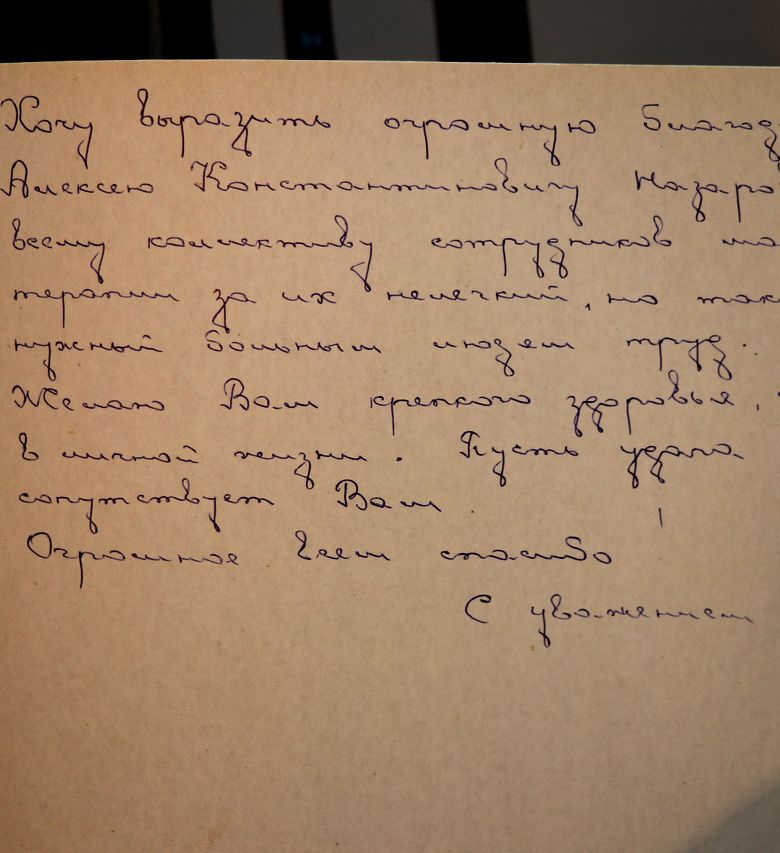 Хочу выразить огромную благод
Алексею Константиновичу Назаро
всему коллективу сотрудников
терапии за их нелегкий, но так
нужный больным людям труд.
Желаю Вам крепкого здоровья,
в личной жизни. Пусть удача
сопутствует Вам
Огромное всем спасибо
С уважением